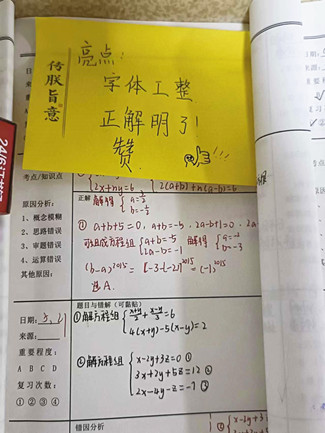 传朕旨意
亮点:
字体工整
正解明了!
赞
考点/知识点
2x+ny=6
原因分析:
1、概念模糊
2、思路错误
3、审题错误
4、运算错误
其他原因:
正解
解得
① a+b+5=0, a+b=-5, 2a-b+1=0, 2a
可组成方程组 { a+b=-5 解得 { a=-2
2a-b=-1 b=-3
(b-a)²⁰¹⁵ = [-3-(-2)]²⁰¹⁵ = (-1)²⁰¹⁵
选A.
日期:
来源:
重要程度:
A B C D
复习次数:
① ② ③ ④
题目与错解（可黏贴）
①解方程组 { (x+y)/2 + (x-y)/3 = 6
4(x+y)-5(x-y)=2
②解方程组 { x-2y+3z=0 ①
3x+2y+5z=12 ②
2x-4y-z=-7 ③
错因分析